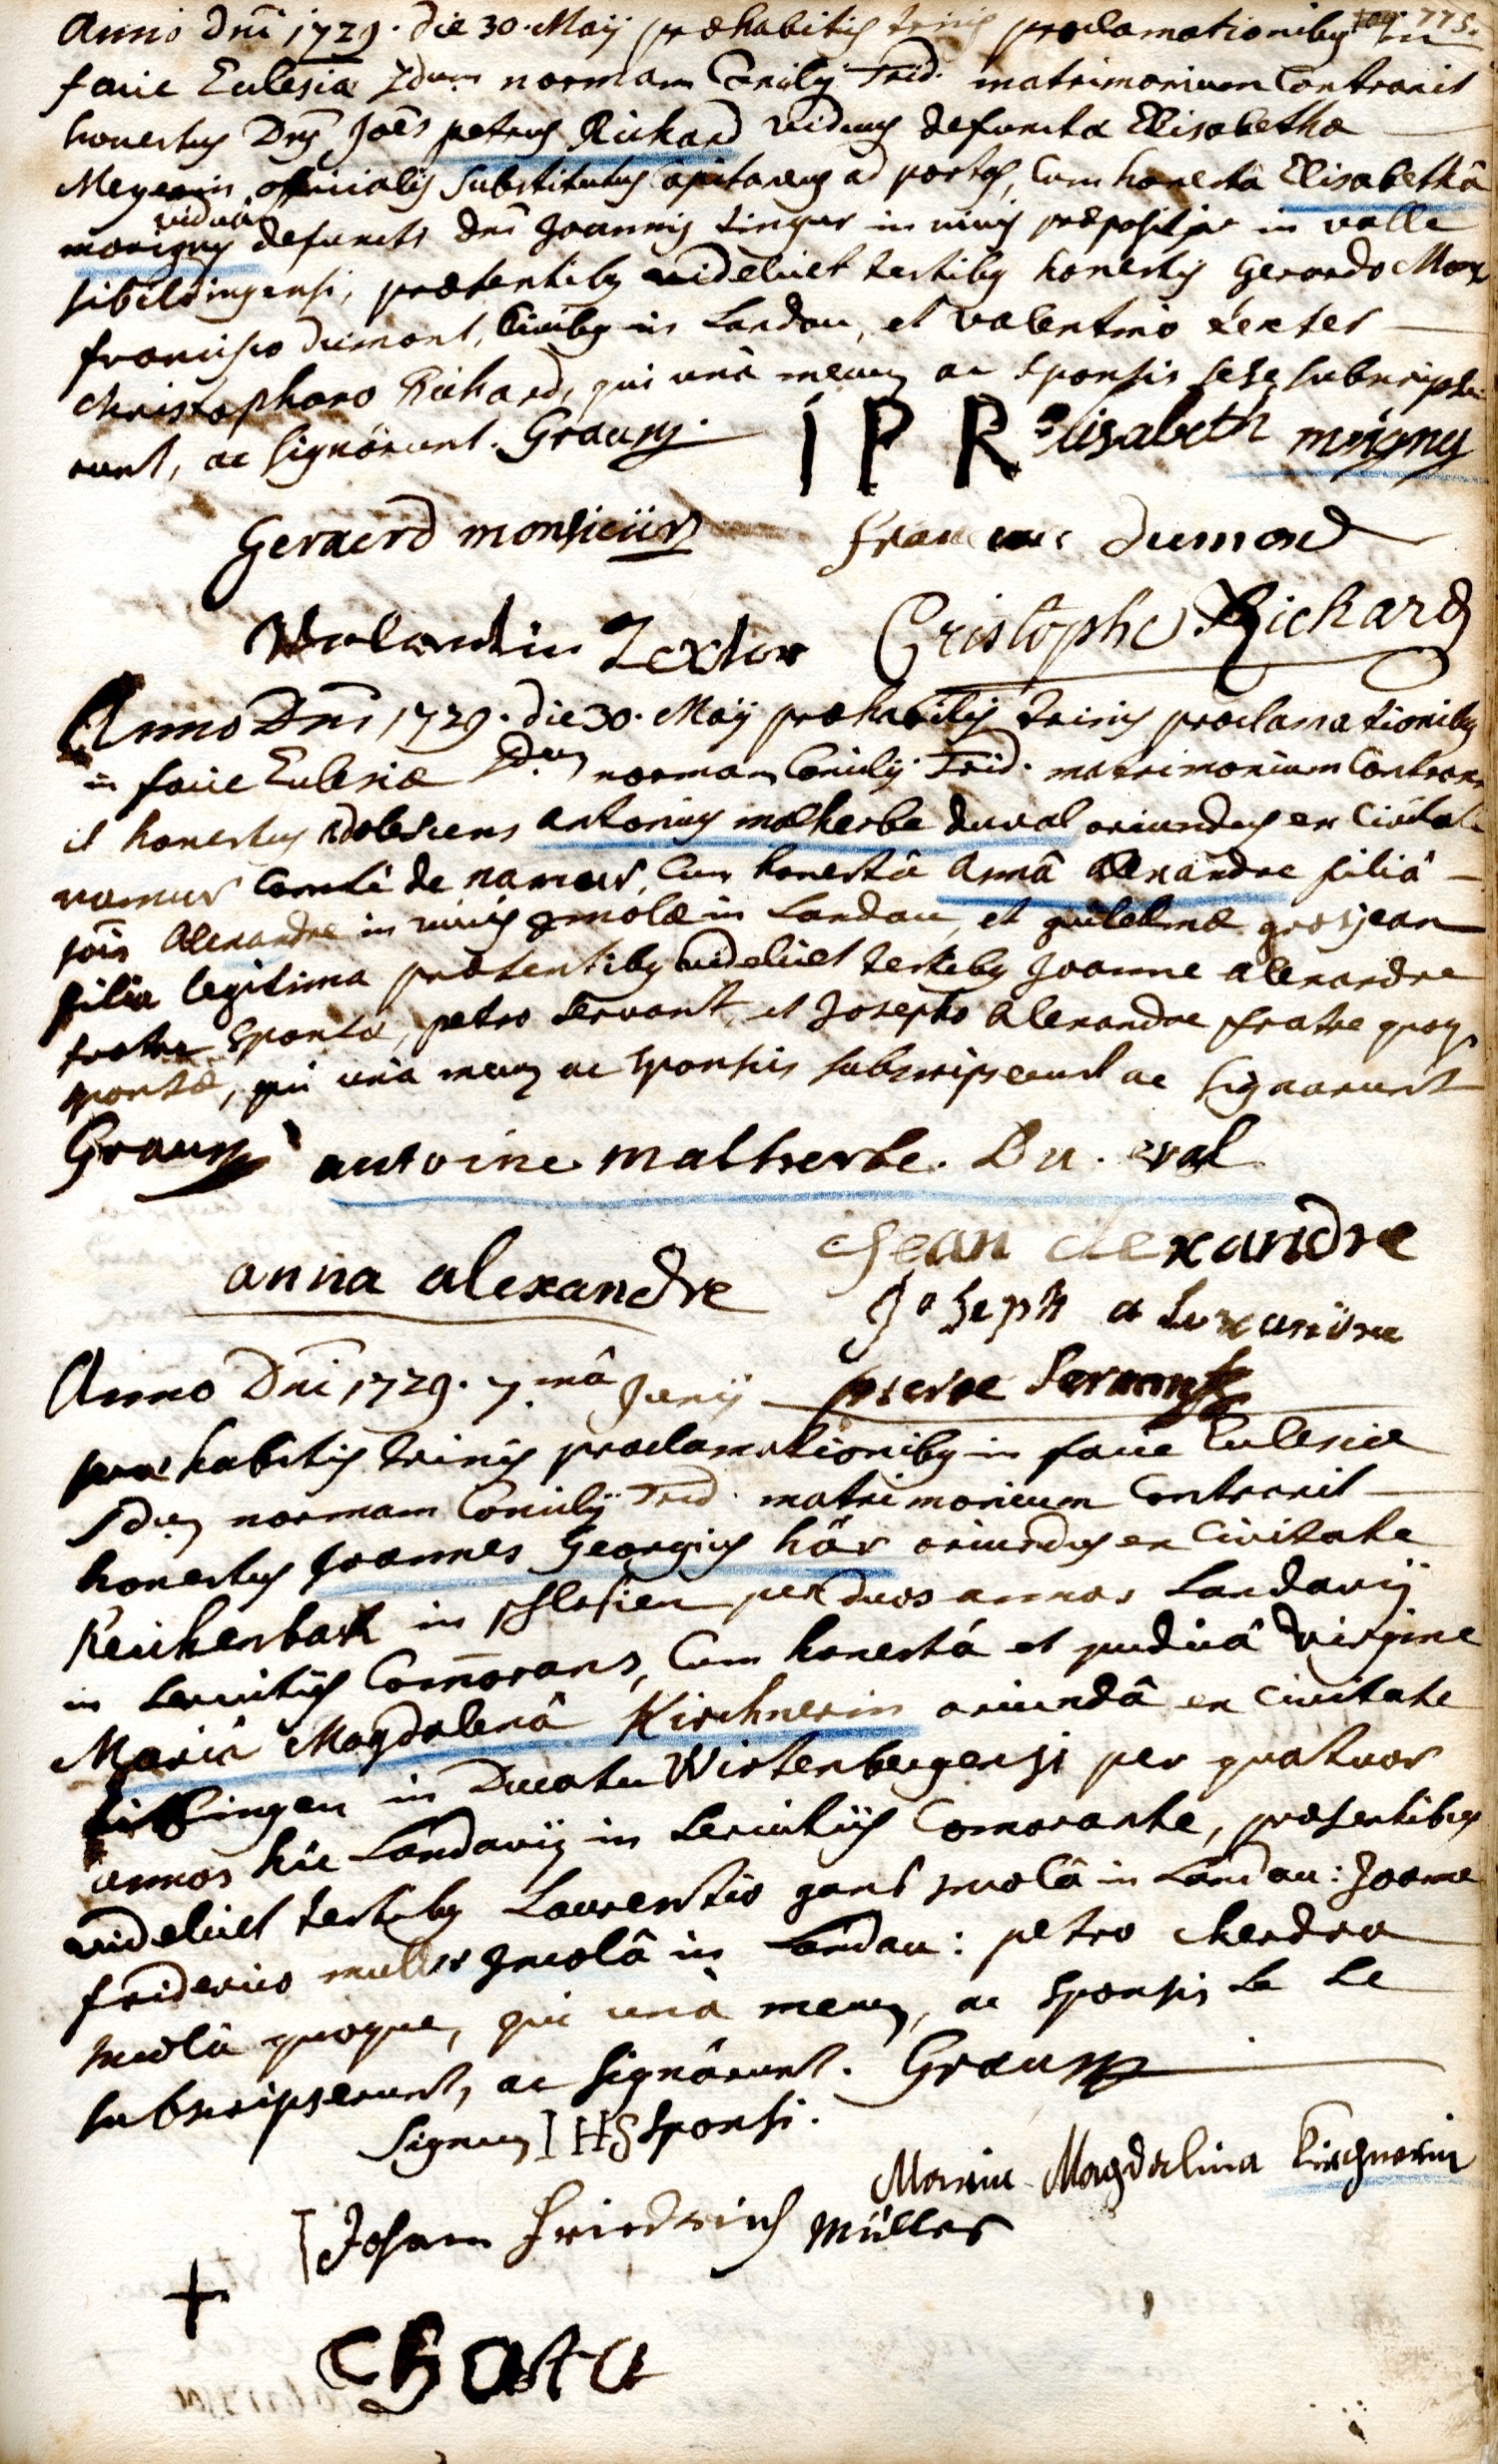 Anno Dni 1729. die 30. Maÿ præhabitis trinis proclamationibg in
facie Eclesiæ 2dum normam Concilÿ Trid. matrimonium Contraxit
honestus Dns Joes petrus Richard viduus defunctæ Elisabethæ
Meyerin officialis Substitutus Capitaneus ad portas, Cum honesta Elisabethâ
viduâ
morigny defuncti dni Joannis singer in vivis præpositi in valle
sibeldingensi, præsentibg videlicet testibg honestis Gerardo Mons
francisco dumont, Civibg in Landau, et valentino texter
christophoro Richard, qui unà mecum ac sponsis sese subscripse
runt, ac signârunt. Graussy.
I P R Elisabeth morigny
Geraerd monsieür
francois dumond
Valentin Textor
Cristophe Richard
Anno Dni 1729. die 30. Maÿ præhabitis trinis proclamationibg
in facie Eclesiæ 2dum normam Concilÿ Trid. matrimonium Contrax
it honestus adolescens antonius malherbe duval oriundus ex Civitate
namur Comté de namur, Cum honestâ Annâ alexandre filiâ
jois Alexandre in vivis Incolæ in Landau, et guilelmæ grosjean
filia legitima præsentibg videlicet testibg Joanne alexandre
fratre sponsæ, petro servant, et Josepho alexandre fratre quoq
sponsæ, qui unà mecum ac sponsis subscripserunt ac signarunt
Graussy
antoine malherbe. Du. val
Jean alexandre
anna alexandre
Joseph alexandre
Anno Dni 1729. 7.mâ Junÿ
pierre Servant
præhabitis trinis proclamationibg in facie Eclesiæ
2dum normam Concilÿ Trid. matrimonium Contraxit
honestus Joannes Georgius här oriundus ex Civitate
Reichenbach in schlesien per duos annos Landavÿ
in servitiis Comorans, Cum honestâ et pudicâ virgine
Mariâ Magdalenâ Kirchnerin oriundâ ex Civitate
in Ducatu Wirtenbergensi per quatuor
annos hic Landavÿ in servitiis Comorante, præsentibus
videlicet testibg Laurentio gans Incolâ in Landau: Joanne
friderico muller Incolâ in Landau: petro chendra
Incolâ quoque, qui unà mecum, ac sponsis se se
subscripserunt, ac signârunt. Graussy
Signum I H S Sponsi.
Maria Magdalina Kirchnerin
Johann Friedrich Müller
+